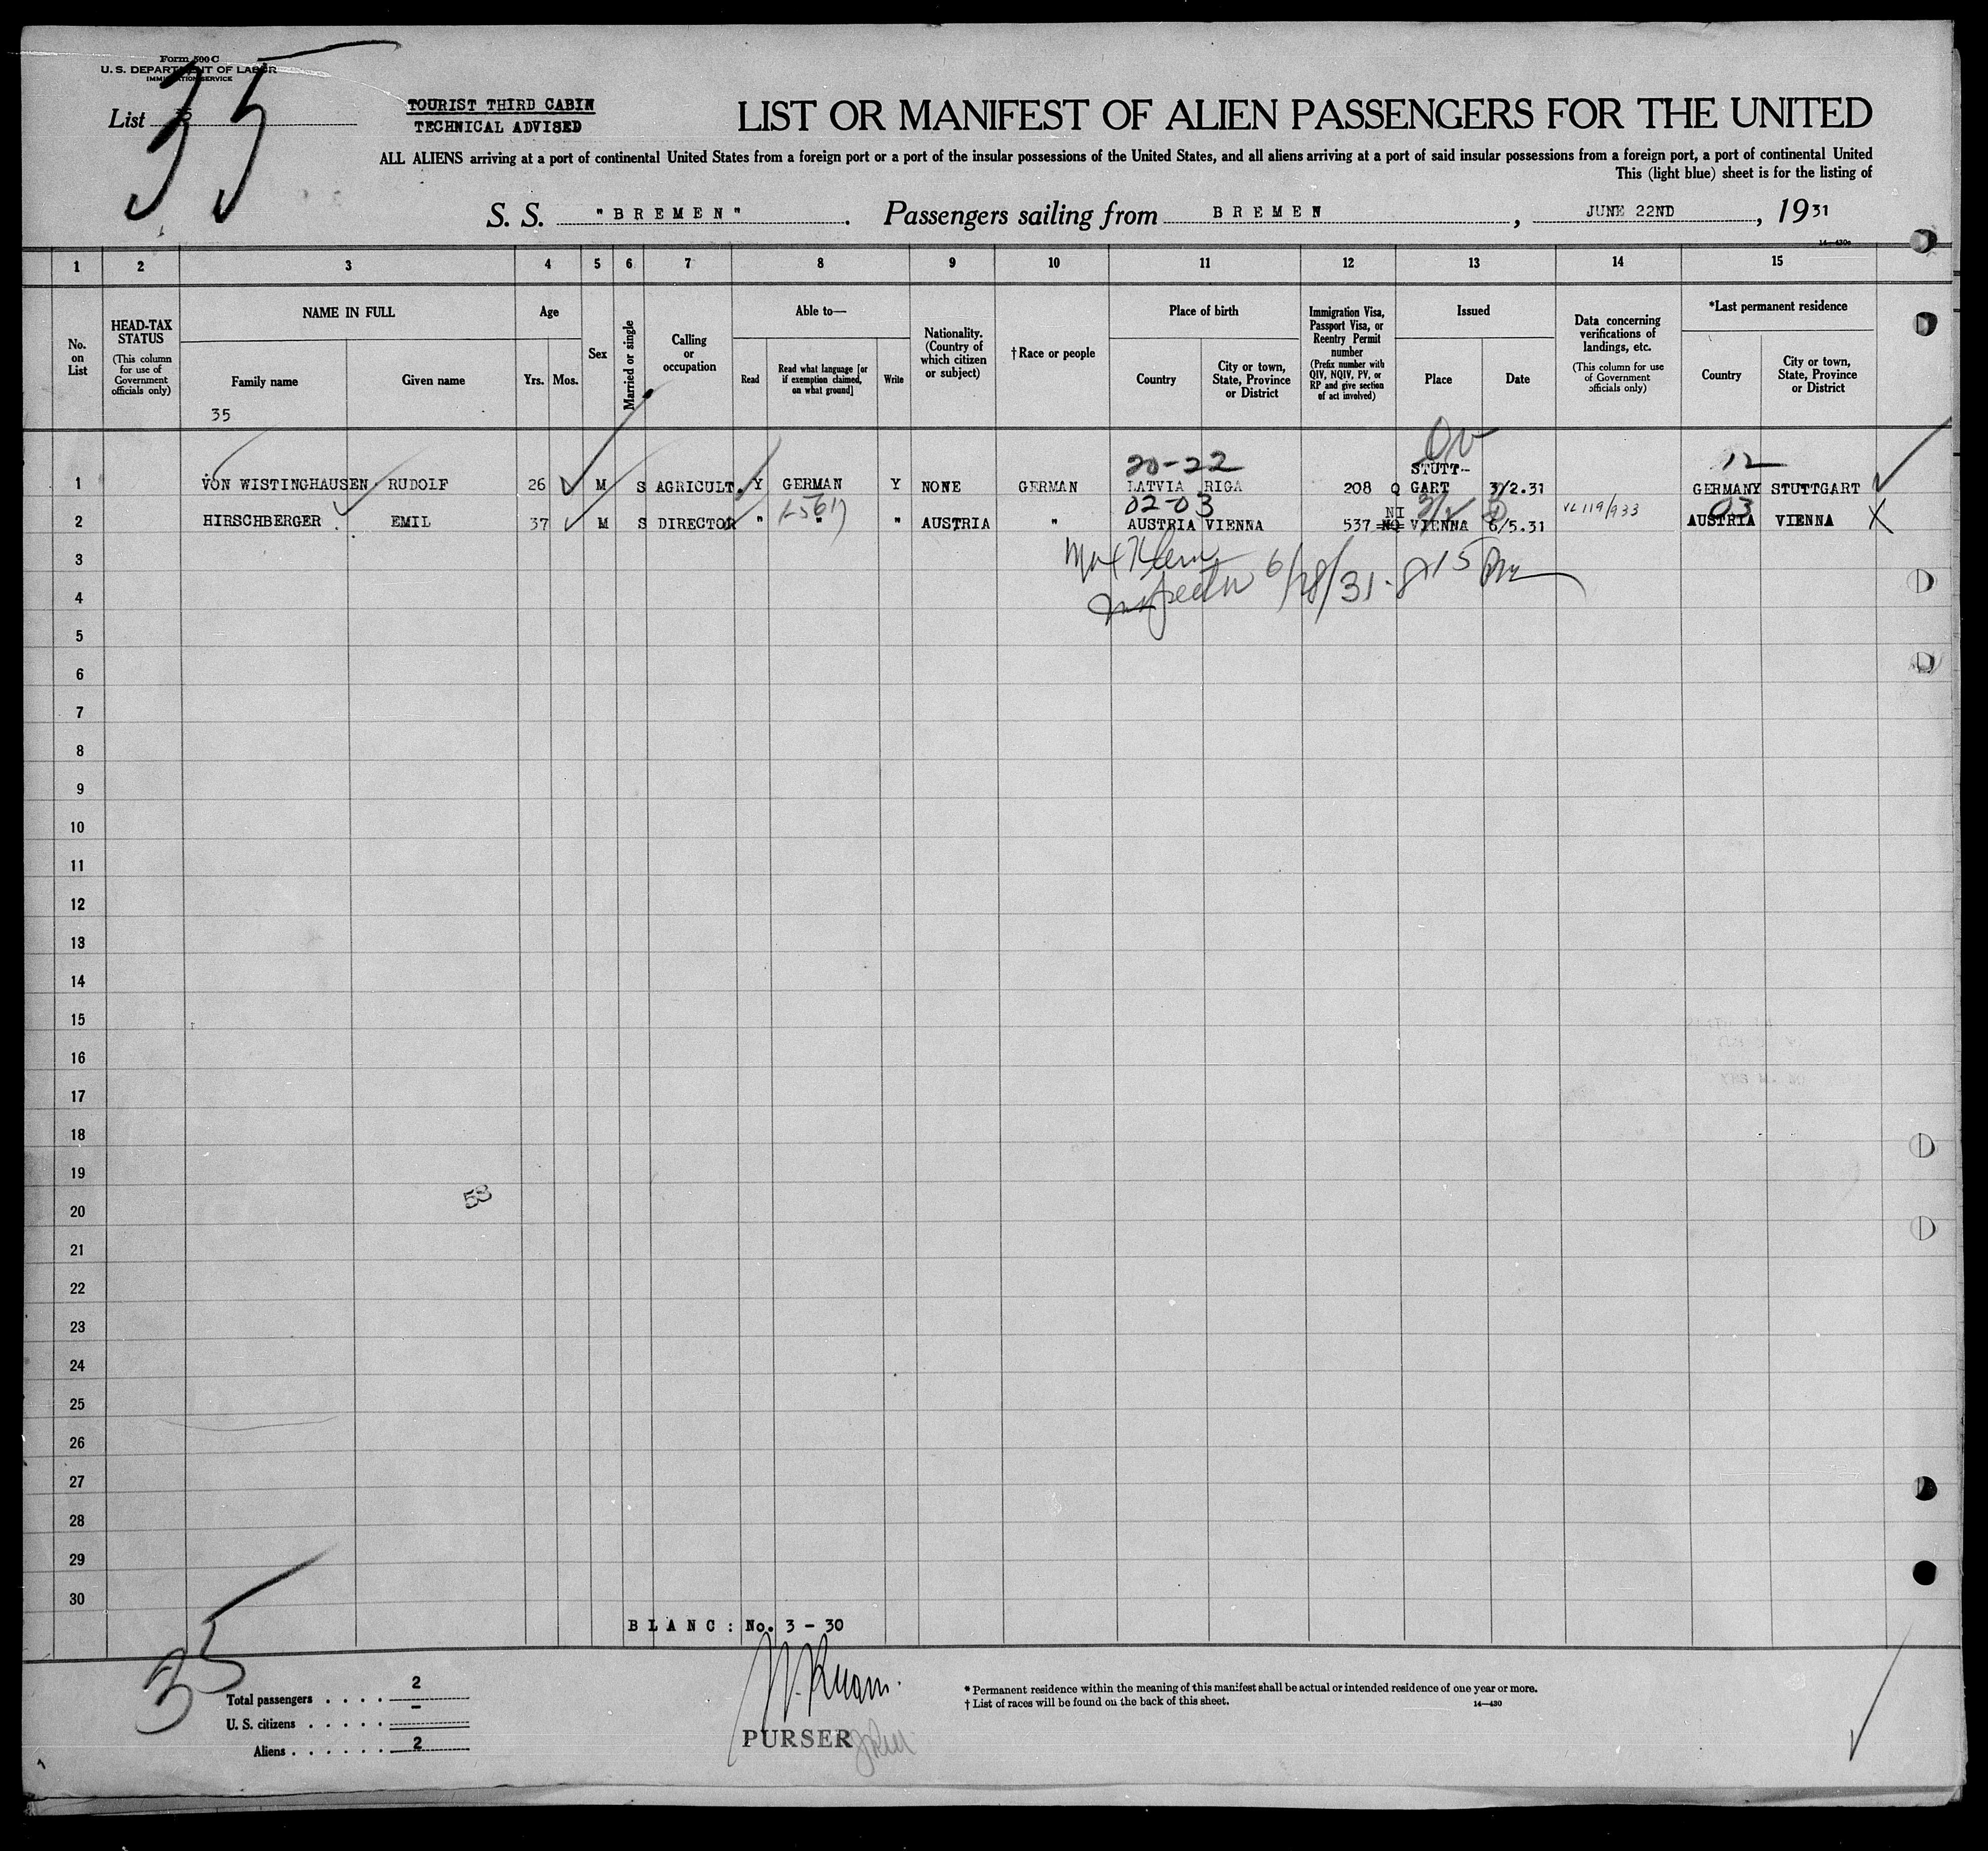 Form 500 C
U. S. DEPARTMENT OF LABOR
IMMIGRATION SERVICE
List 35
35
TOURIST THIRD CABIN
TECHNICAL ADVISED
LIST OR MANIFEST OF ALIEN PASSENGERS FOR THE UNITED
ALL ALIENS arriving at a port of continental United States from a foreign port or a port of the insular possessions of the United States, and all aliens arriving at a port of said insular possessions from a foreign port, a port of continental United
This (light blue) sheet is for the listing of
S. S. "BREMEN". Passengers sailing from BREMEN, JUNE 22ND, 1931
14—430c
1 2 3 4 5 6 7 8 9 10 11 12 13 14 15
No. on List
HEAD-TAX STATUS
(This column for use of Government officials only)
NAME IN FULL
Family name
Given name
35
Age
Yrs. Mos.
Sex
Married or single
Calling or occupation
Able to—
Read
Read what language [or if exemption claimed, on what ground]
Write
Nationality. (Country of which citizen or subject)
† Race or people
Place of birth
Country
City or town, State, Province or District
Immigration Visa, Passport Visa, or Reentry Permit number
(Prefix number with QIV, NQIV, PV, or RP and give section of act involved)
Issued
Place
Date
Data concerning verifications of landings, etc.
(This column for use of Government officials only)
*Last permanent residence
Country
City or town, State, Province or District
20-22
STUTT-
12
1 VON WISTINGHAUSEN RUDOLF 26 M S AGRICULT. Y GERMAN Y NONE GERMAN LATVIA RIGA 208 Q GART 3/2.31 GERMANY STUTTGART
02-03
NI
03
2 HIRSCHBERGER EMIL 37 M S DIRECTOR " " " AUSTRIA " AUSTRIA VIENNA 537 NQ VIENNA 6/5.31 AUSTRIA VIENNA X
3
Inspector 6/28/31
4
5
6
7
8
9
10
11
12
13
14
15
16
17
18
19
53
20
21
22
23
24
25
26
27
28
29
30
BLANC: No. 3 – 30
35
Total passengers . . . . 2
U. S. citizens . . . . . –
Aliens . . . . . . 2
PURSER
* Permanent residence within the meaning of this manifest shall be actual or intended residence of one year or more.
† List of races will be found on the back of this sheet.
14—430